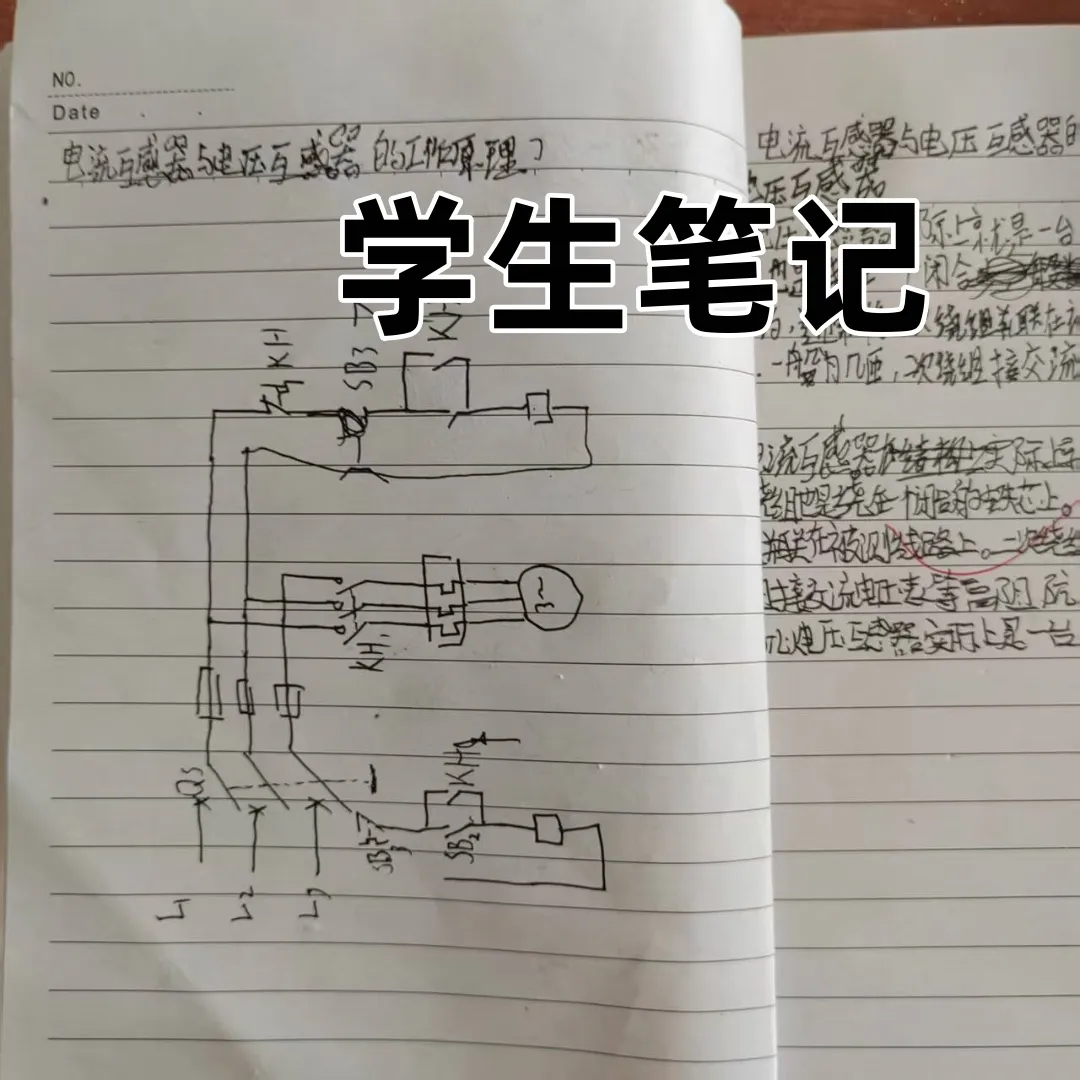 NO.
Date
电流互感器与电压互感器的工作原理?
学生笔记
KH
SB3
KH1
QS
SB3
SB2
KH
L1
L2
L3
电流互感器与电压互感器的
压互感器
际上就是一台
闭合
绕组并联在
一般为几匝,二次绕组接交流
流互感器 实际上是
绕在一个闭合的铁芯上。
联在被测线路上。二次绕组
接交流电压表等高阻抗
电压互感器实际上是一台